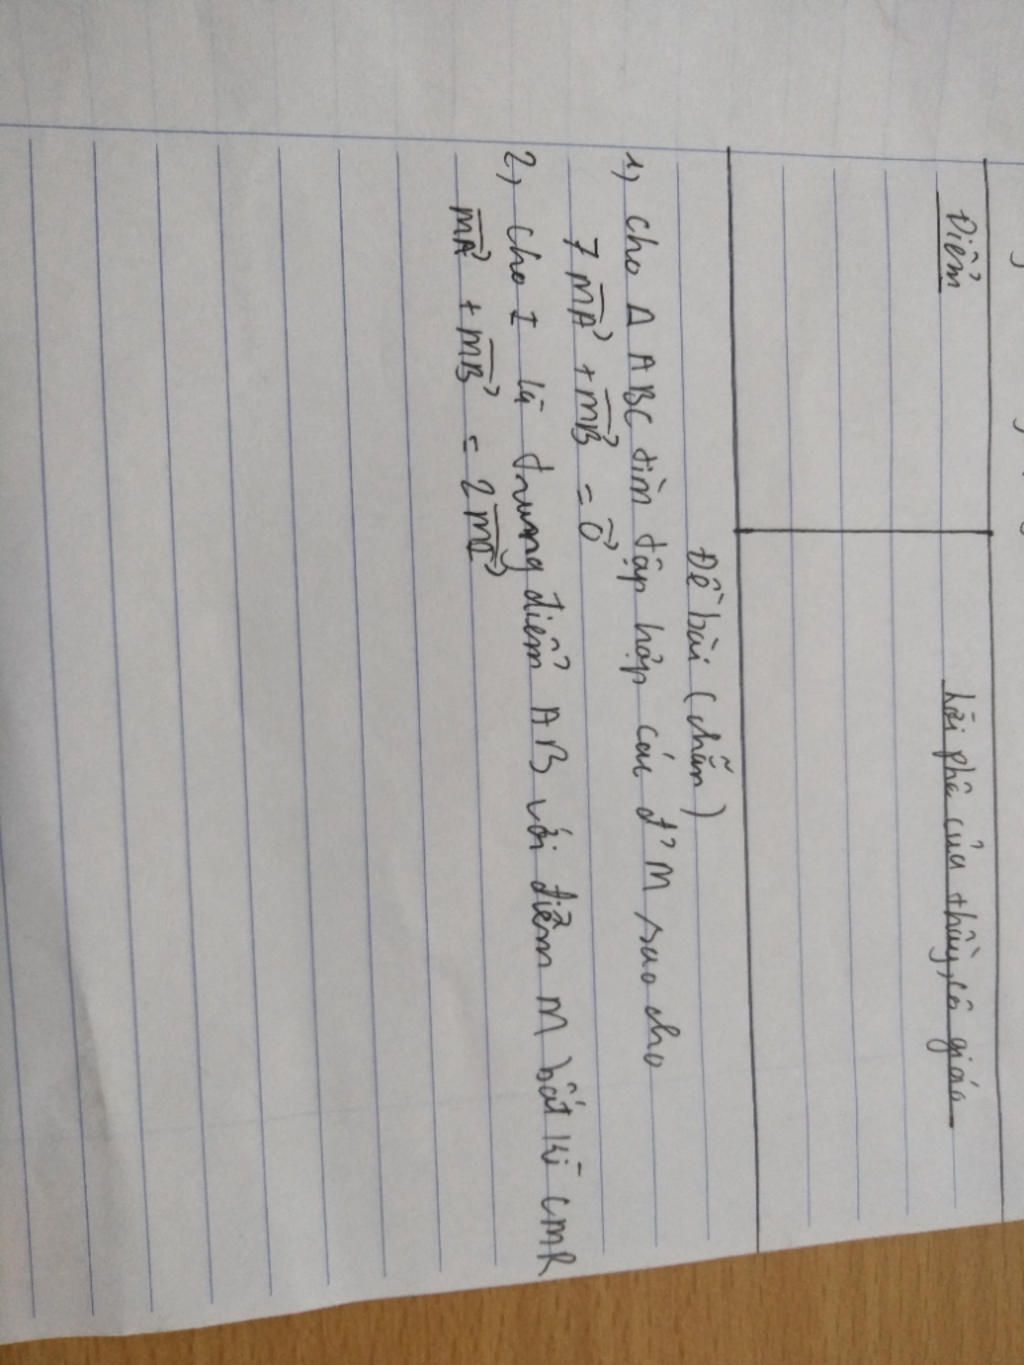 Điểm
Lời phê của thầy, cô giáo
Đề bài (chẵn)
1, Cho Δ ABC tìm tập hợp các đ' M sao cho
7 MA⃗ + MB⃗ = 0⃗
2, Cho I là trung điểm AB với điểm M bất kì CMR
MA⃗ + MB⃗ = 2 MI⃗